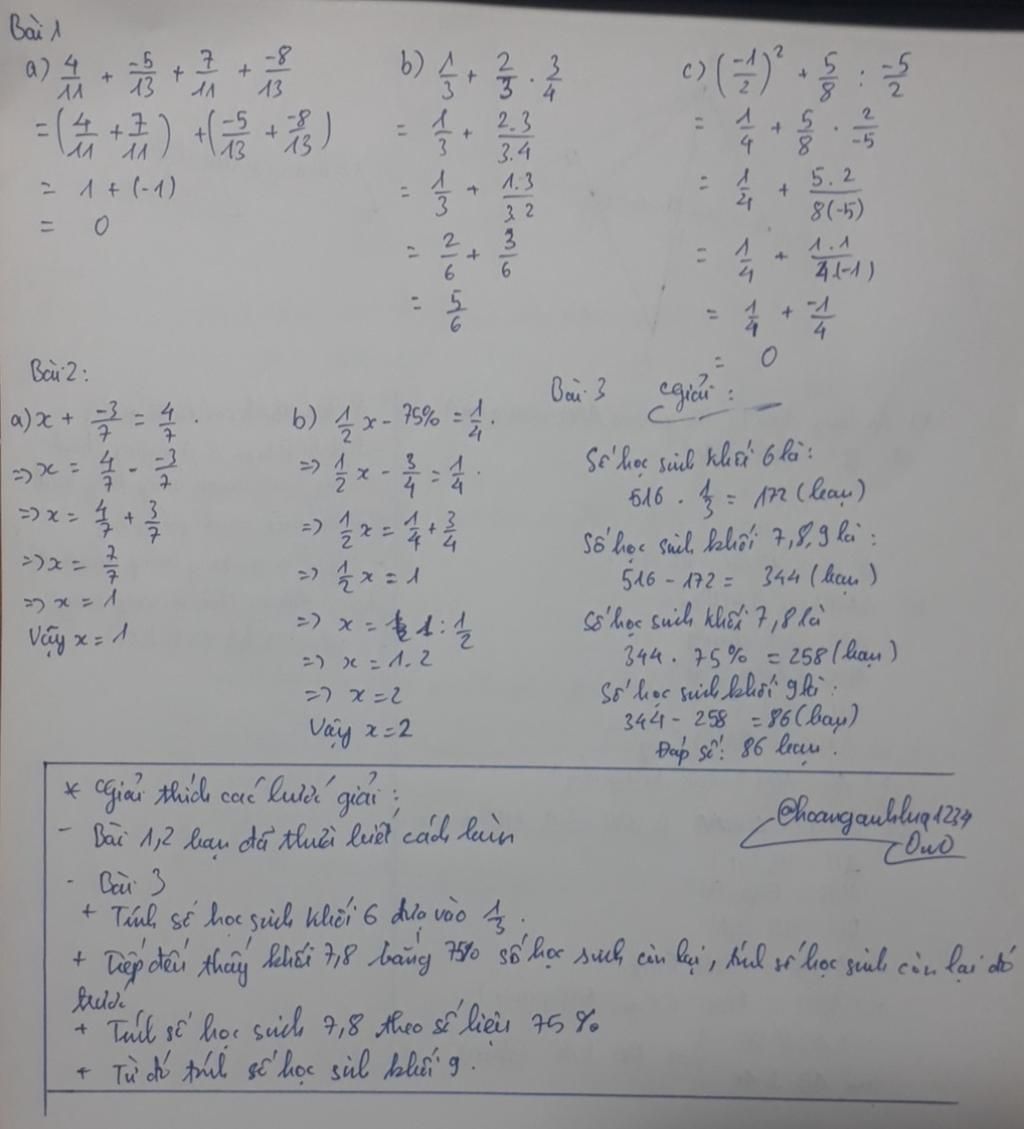 Bài 1
a) 4/11 + -5/13 + 7/11 + -8/13
= (4/11 + 7/11) + (-5/13 + -8/13)
= 1 + (-1)
= 0
b) 1/3 + 2/3 . 3/4
= 1/3 + 2.3/3.4
= 1/3 + 1.3/3.2
= 2/6 + 3/6
= 5/6
c) (-1/2)² + 5/8 : -5/2
= 1/4 + 5/8 . 2/-5
= 1/4 + 5.2/8(-5)
= 1/4 + 1.1/4.(-1)
= 1/4 + -1/4
= 0
Bài 2:
a) x + -3/7 = 4/7 .
=> x = 4/7 - -3/7
=> x = 4/7 + 3/7
=> x = 7/7
=> x = 1
Vậy x = 1
b) 1/2 x - 75% = 1/4 .
=> 1/2 x - 3/4 = 1/4 .
=> 1/2 x = 1/4 + 3/4
=> 1/2 x = 1
=> x = 1 : 1/2
=> x = 1.2
=> x = 2
Vậy x = 2
Bài 3 Giải :
Số học sinh khối 6 là :
516 . 1/3 = 172 (bạn)
Số học sinh khối 7,8,9 là :
516 - 172 = 344 (bạn)
Số học sinh khối 7,8 là
344 . 75% = 258 (bạn)
Số học sinh khối 9 là :
344 - 258 = 86 (bạn)
Đáp số : 86 bạn .
* Giải thích các bước giải :
- Bài 1,2 bạn đã biết cách làm
@hoanganhbua1234
OwO
- Bài 3
+ Tính số học sinh khối 6 dựa vào 1/3 .
+ Tiếp đến thấy khối 7,8 bằng 75% số học sinh còn lại, tính số học sinh còn lại đó
trước
+ Tính số học sinh 7,8 theo số liệu 75%
+ Từ đó tính số học sinh khối 9 .